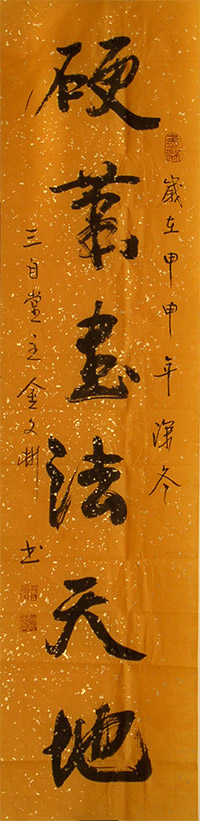 硬笔書法天地
歲在甲申年深冬
三自堂主金文
書